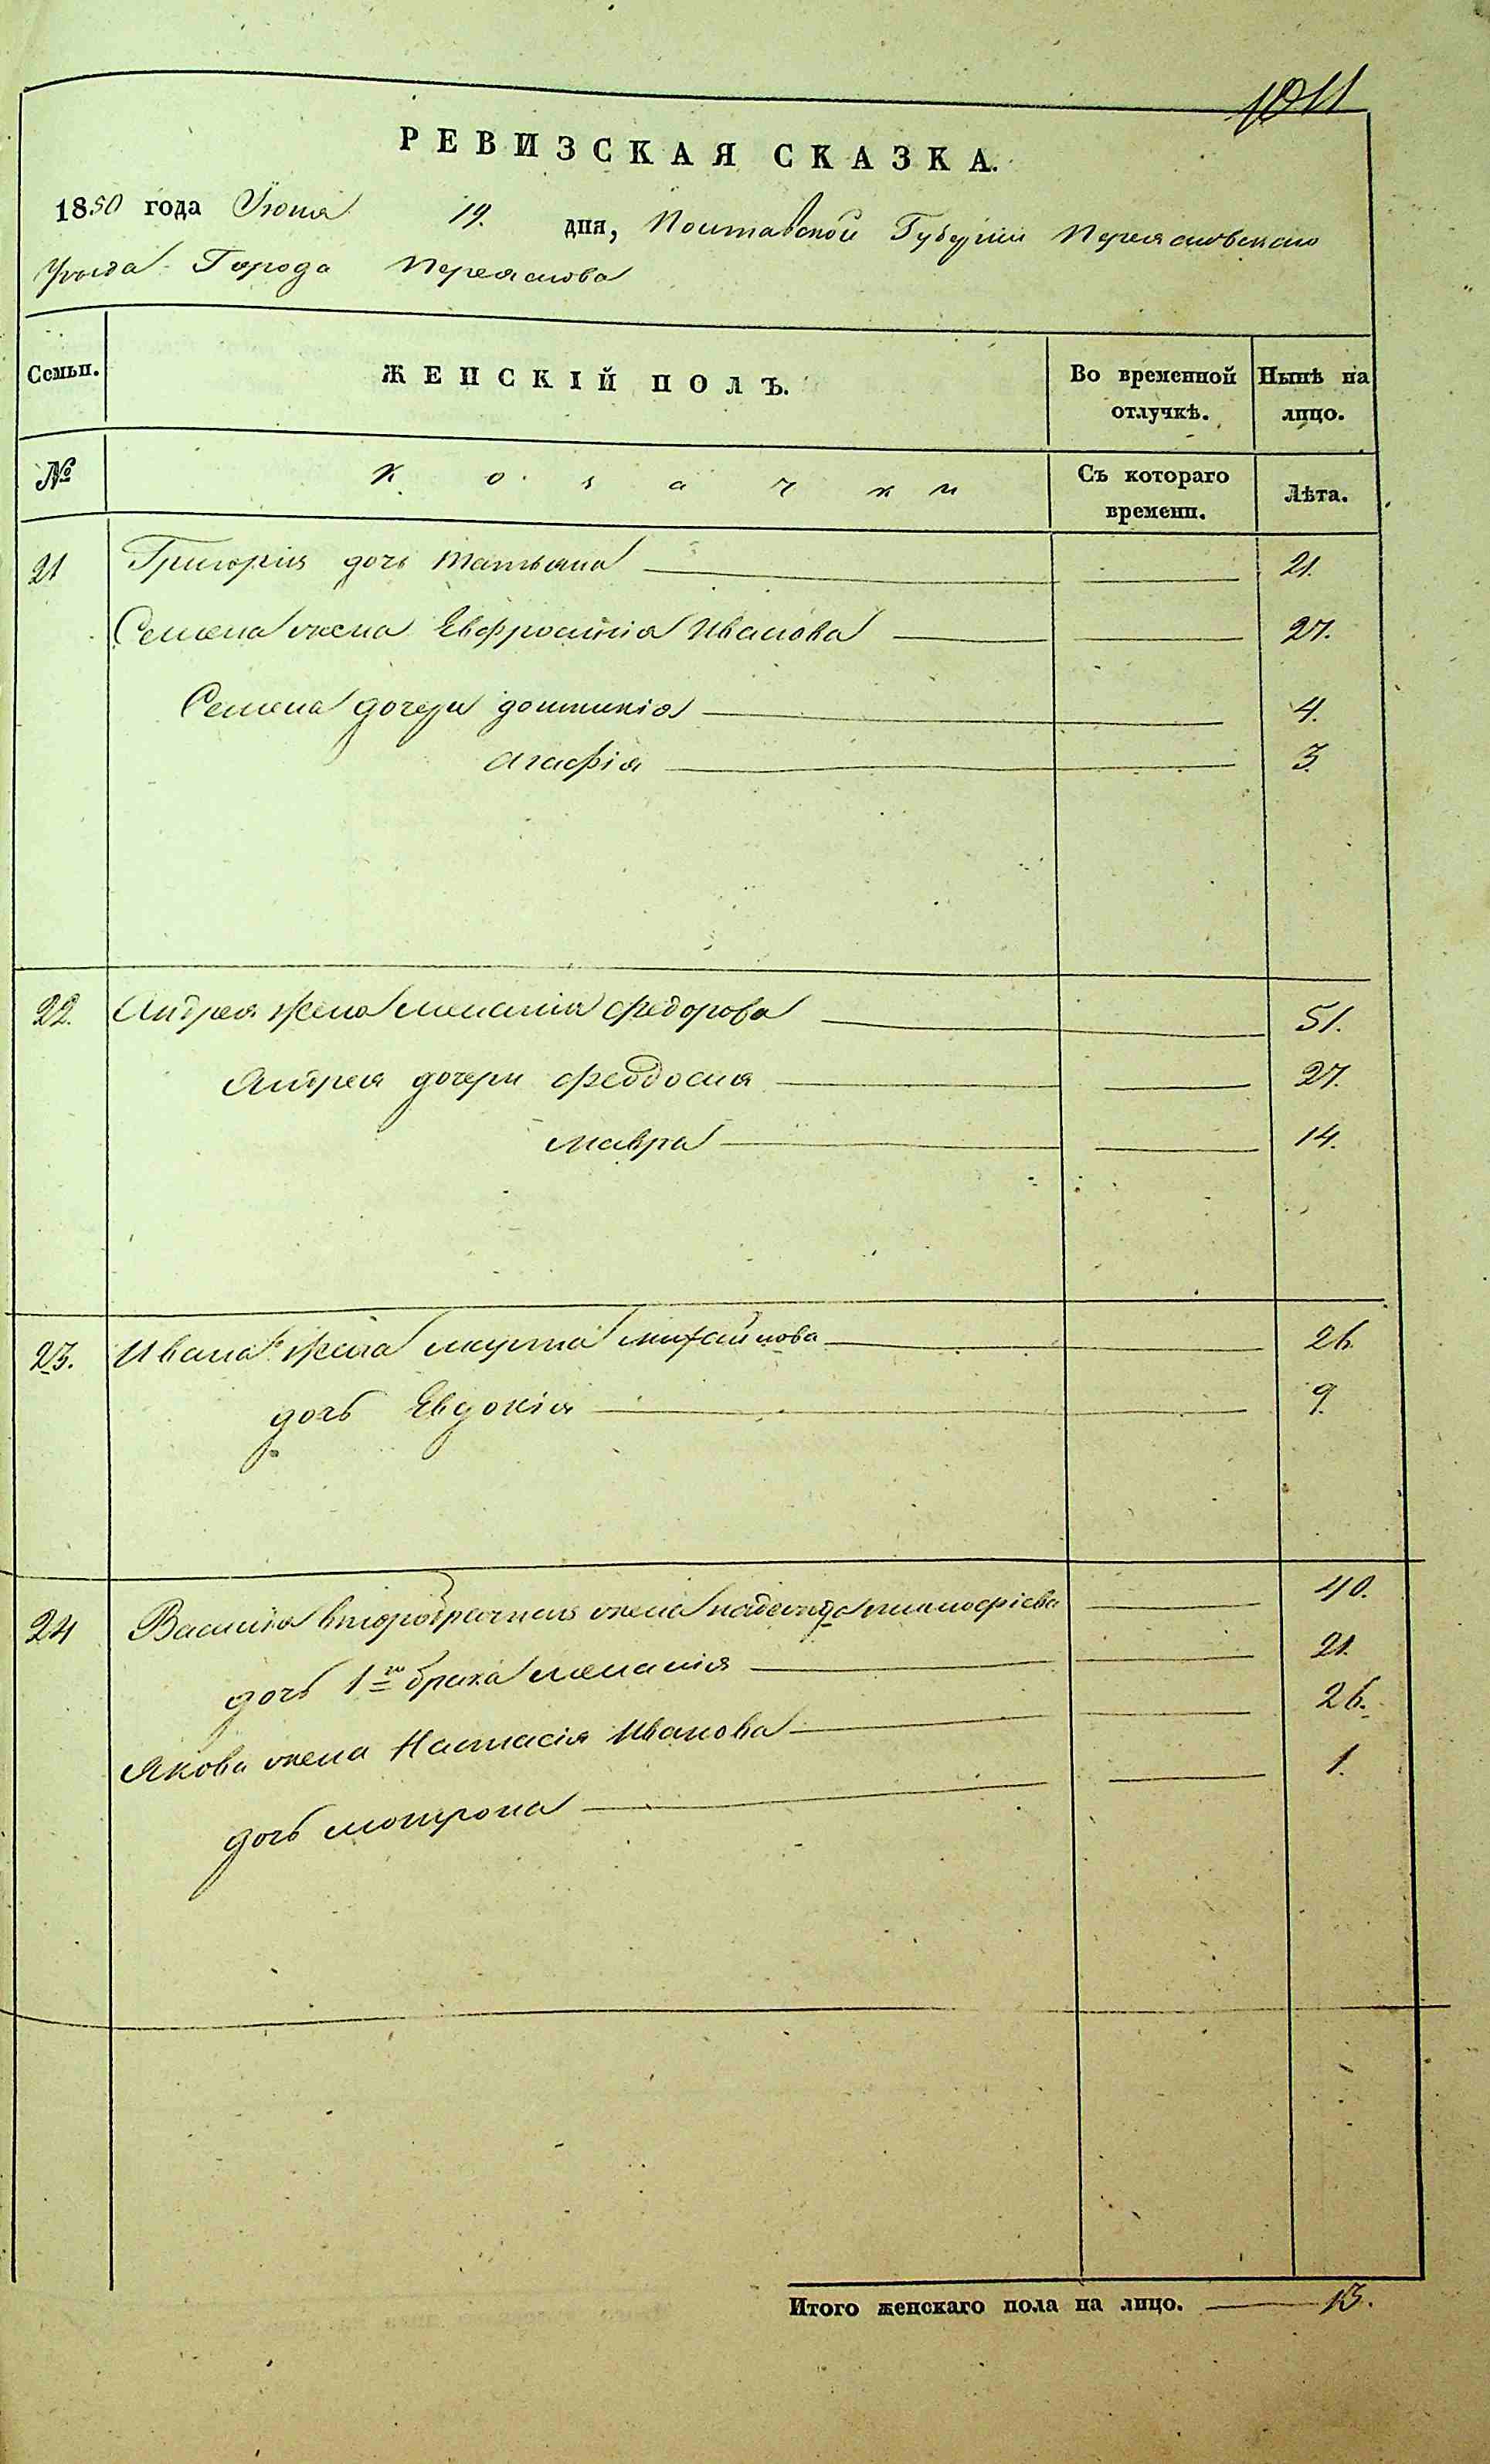 1011
РЕВИЗСКАЯ СКАЗКА.
1850 года Іюня 19. дня, Полтавской Губерніи Переясловскаго
Уѣзда Города Переяслова
Семьи. ЖЕНСКІЙ ПОЛЪ. Во временной отлучкѣ. Нынѣ на лицо.
№ Козачки Съ котораго времени. Лѣта.
21 Григорія дочь Татьяна 21.
Семена жена Евфросинія Иванова 27.
Семена дочери Домникія 4.
Агафія 3.
22. Андрея жена Меланія Федорова 51.
Андрея дочери Феодосия 27.
Мавра 14.
23. Ивана жена Михайлова 26.
дочь Евдокія 9.
24 Василія второбрачная жена Надежда Тимофѣева 40.
дочь 1го брака Меланія 21.
Якова жена Настасія Иванова 26.
дочь Мотрона 1.
Итого женскаго пола на лицо. 13.